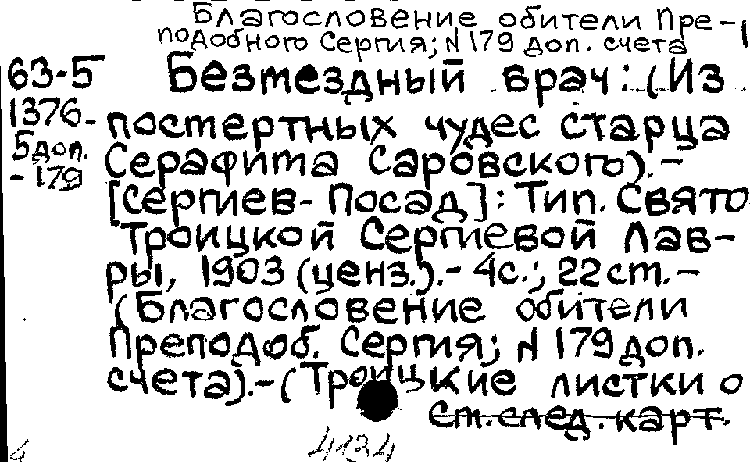 Благословение обители Пре-
подобного Сергия; N 179 доп. счета
63-5 Безмездный врач: (Из
1376- посмертных чудес старца
5доп. Серафима Саровского).-
-179 [Сергиев-Посад]: Тип. Свято
Троицкой Сергиевой Лав-
ры, 1903 (ценз.).- 4с.; 22 ст.-
(Благословение обители
Преподоб. Сергия; N 179 доп.
счета).- (Троицкие листки о
См. след. карт.
4134